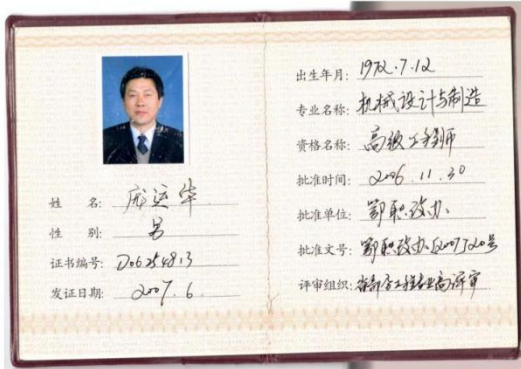 姓 名: 庞运华
性 别: 男
证书编号: D06254813
发证日期: 2007.6.
出生年月: 1972.7.12
专业名称: 机械设计与制造
资格名称: 高级工程师
批准时间: 2006.11.30
批准单位: 鄂职改办
批准文号: 鄂职改办[2007]20号
评审组织: 工程专业高评审